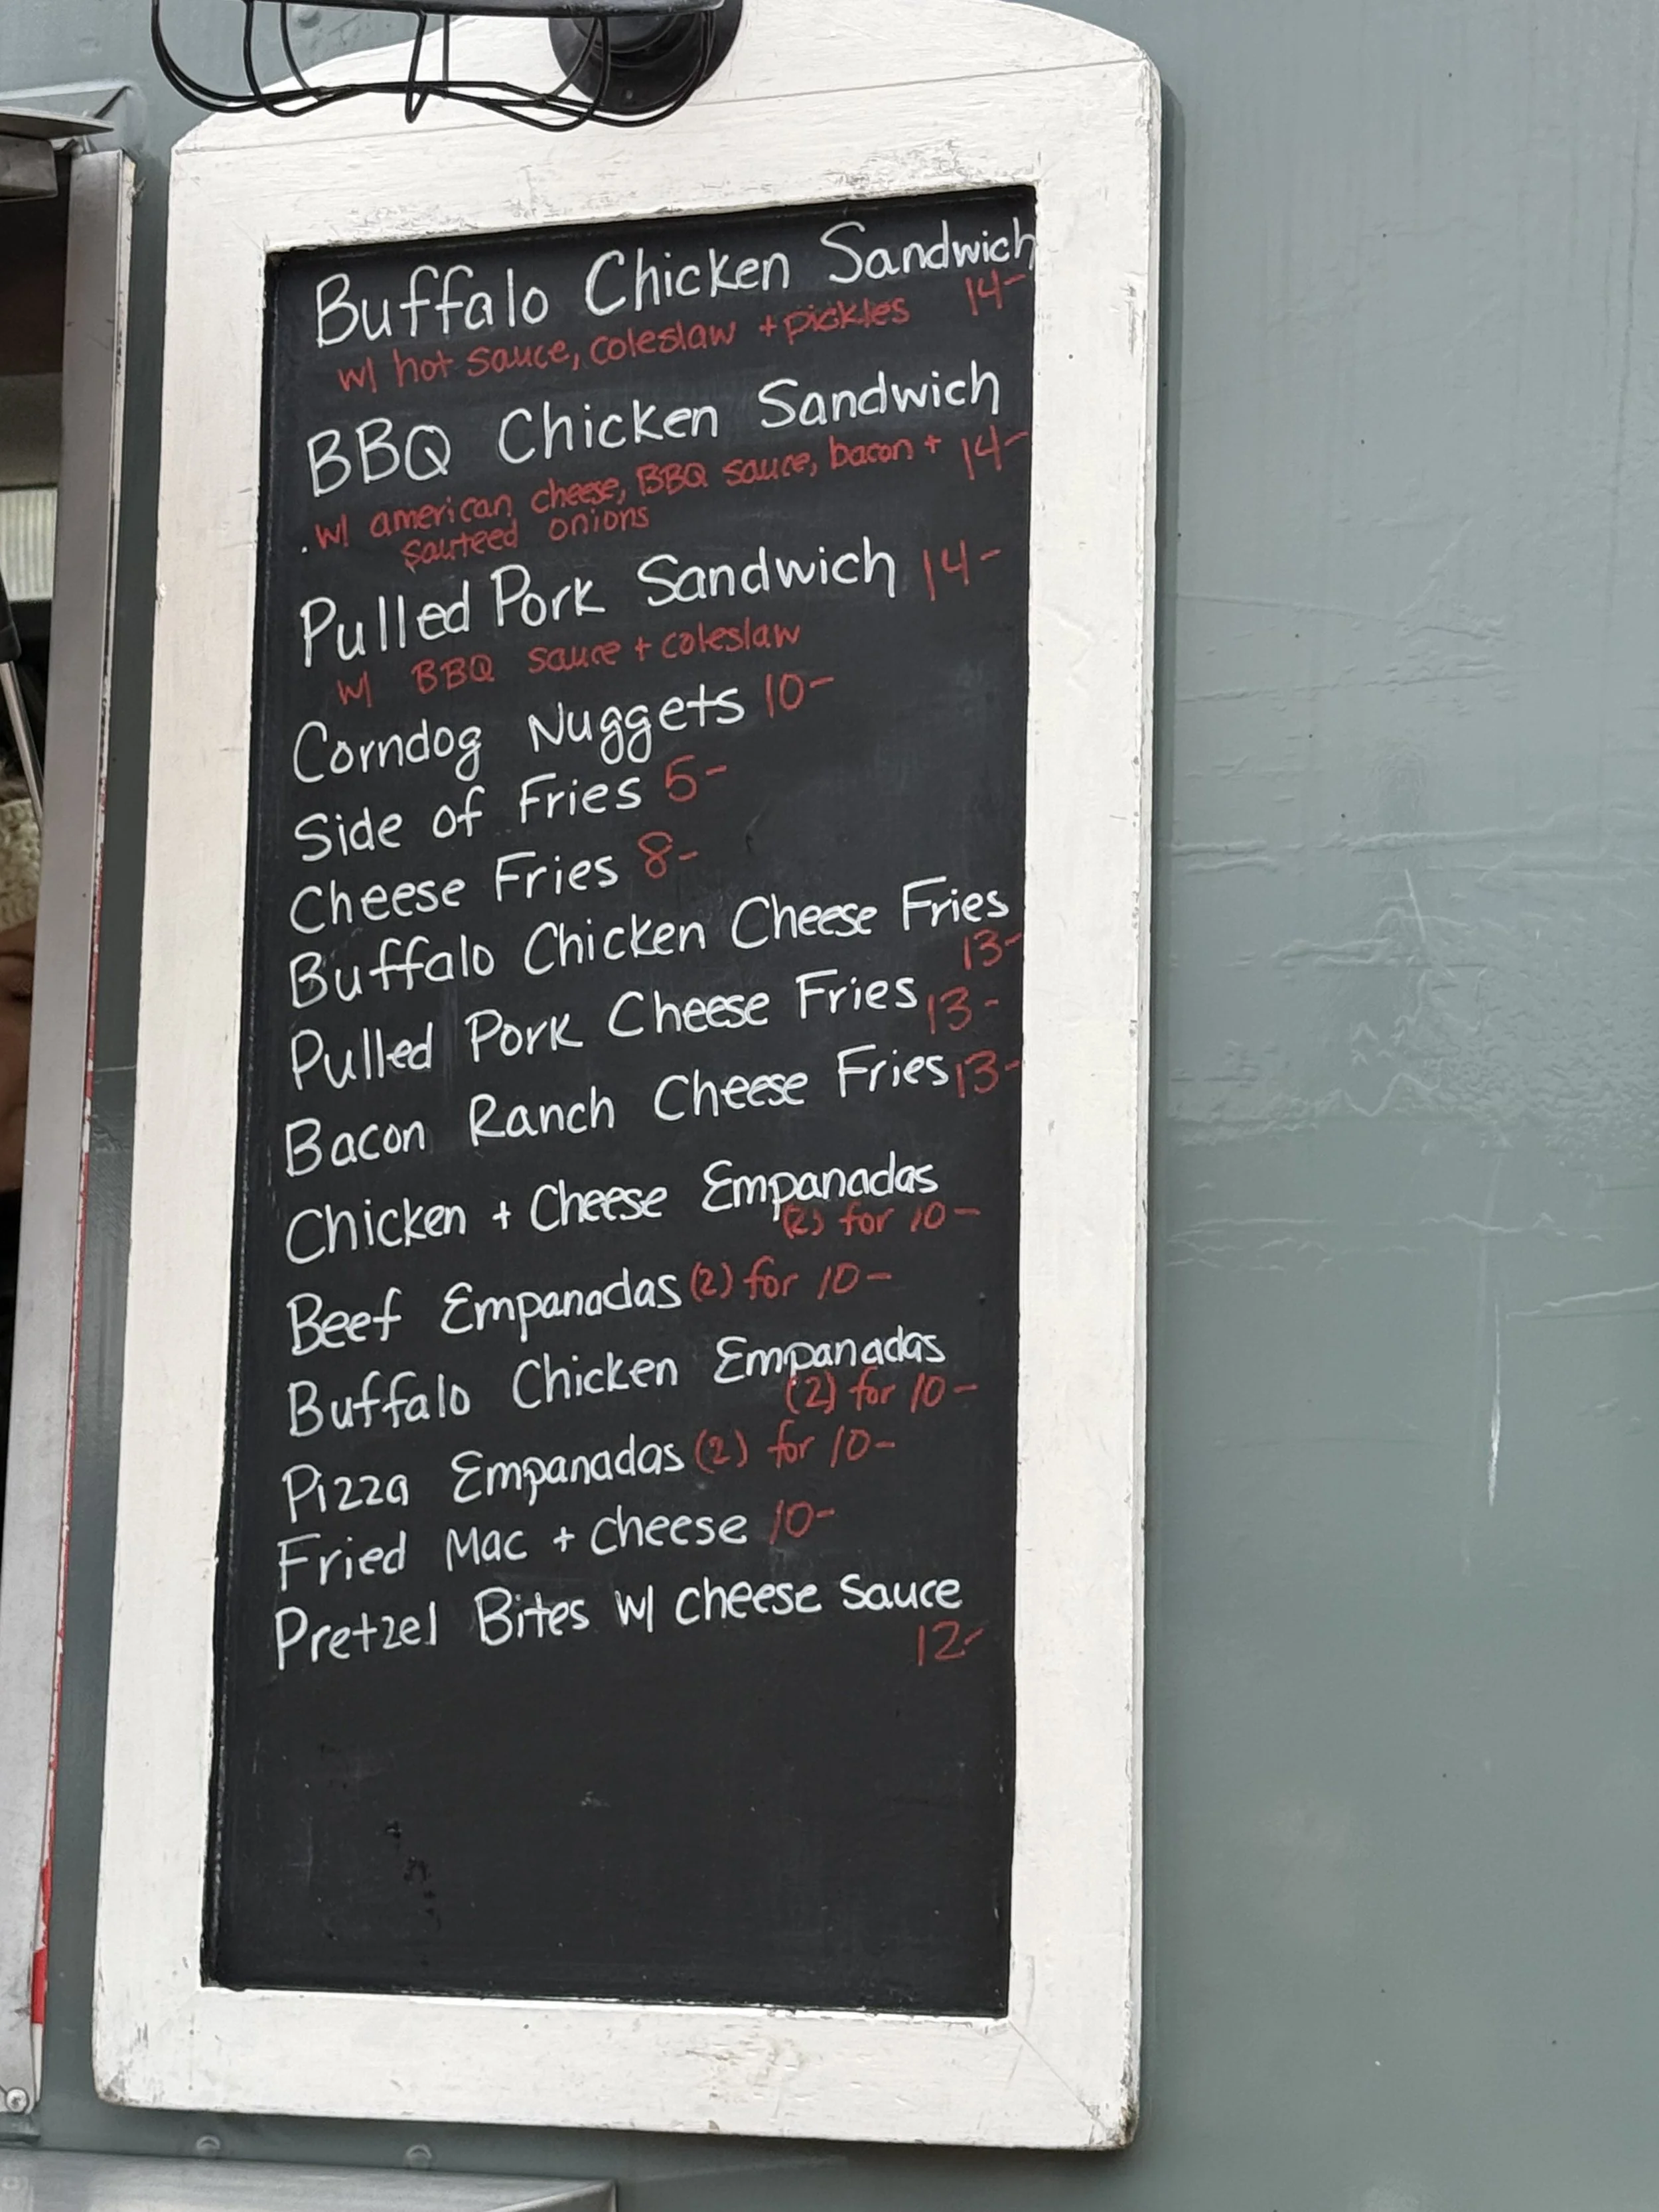 Buffalo Chicken Sandwich
w/ hot sauce, coleslaw + pickles 14-
BBQ Chicken Sandwich
. w/ american cheese, BBQ sauce, bacon + 14-
sauteed onions
Pulled Pork Sandwich 14-
w/ BBQ sauce + coleslaw
Corndog Nuggets 10-
Side of Fries 5-
Cheese Fries 8-
Buffalo Chicken Cheese Fries
13-
Pulled Pork Cheese Fries 13-
Bacon Ranch Cheese Fries 13-
Chicken + Cheese Empanadas
(2) for 10-
Beef Empanadas (2) for 10-
Buffalo Chicken Empanadas
(2) for 10-
Pizza Empanadas (2) for 10-
Fried Mac + Cheese 10-
Pretzel Bites w/ cheese sauce
12-